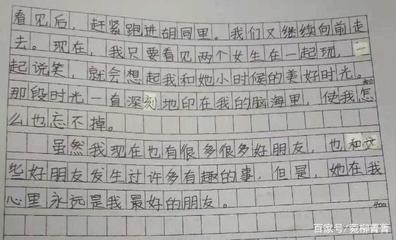 看见后，赶紧跑进胡同里。我们又继续向前走
去。现在，我只要看见两个女生在一起玩，一
起说笑，就会想起我和她小时候的美好时光。
那段时光一直深刻地印在我的脑海里，使我怎
么也忘不掉。
虽然我现在也有很多很多好朋友，也和这
些好朋友发生过许多有趣的事，但是，她在我
心里永远是我最好的朋友。
400
百家号/宛柳菁菁